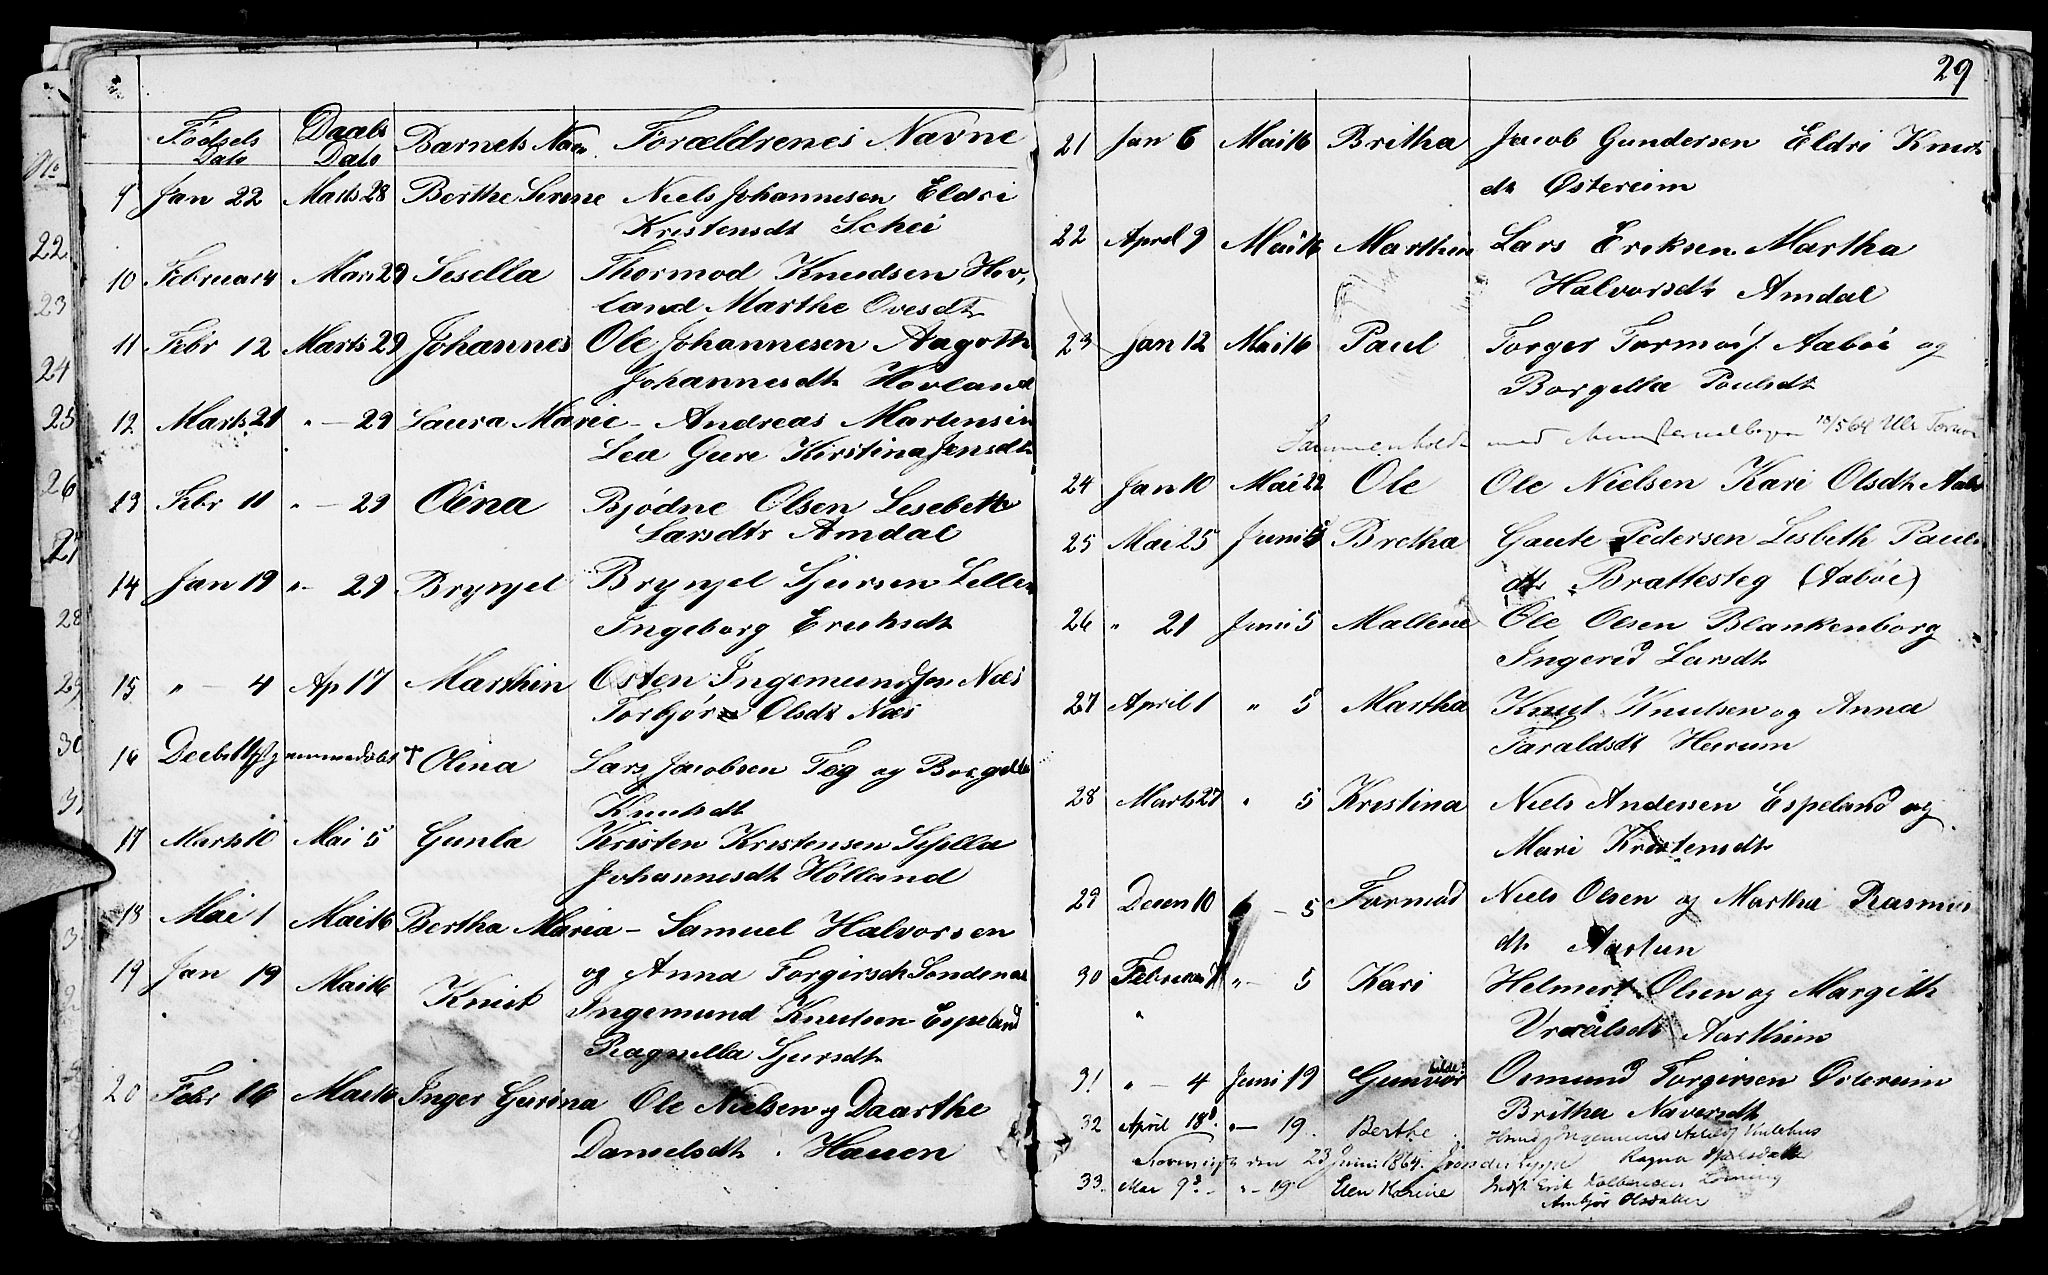 Fødsels Dato Daabs Dato Barnets Navn Forældrenes Navne
No
9 Jan 22 Marts 28 Berthe Serene Niels Johannesen Eldri
Kristensdt Schei
10 Februar 4 Mars 29 Sesella Thormod Knudsen Hov,
land Marthe Ovesdtr
11 Febr 12 Marts 29 Johannes Ole Johannesen Aagothe
Johannesdt Hovland
12 Marts 21 " - 29 Laura Marie - Andreas Martensen
Lea Gure Kirstina Jensdt
13 Febr 11 " - 29 Olina Bjødne Olsen Lesebeth
Larsdtr Amdal
14 Jan 19 " - 29 Brynjel Brynjel Sjursen
Ingeborg Erichsdt
15 " - 4 Ap 17 Marthin Osten Ingemundsen Næs
Torbjør Olsdt Næs
16 Olina Lars Jacobsen Teg og Borgella
Knutsdt
17 Marts 10 Mai 5 Gunla Kristen Kristensen Sesella
Johannesdt Hølland
18 Mai 1 Mai 16 Bertha Maria - Samuel Halvorsen
og Anna Torgirsdt Sondenaa
19 Jan 19 Mai 16 Knut Ingemund Knutsen Espeland
Ragnella Sjursdt
20 Febr 16 Mai 16 Inger Gurina Ole Nielsen og Daarthe
Danielsdt . Hauen
22
23
24
25
26
27
28
29
30
29
21 Jan 6 Mai 16 Britha Jacob Gundersen Eldri Knuts
dt Østereim
22 April 9 Mai 16 Marthin Lars Eriksen Martha
Halvorsdt Amdal
23 Jan 12 Mai 16 Paul Torger Tormois. Aabøe og
Borgella Poulsdt
Sammenholdt med
24 Jan 10 Mai 22 Ole Ole Nielsen Kari Olsdt Aabø
25 Mai 25 Juni 5 Bretha Gaute Pedersen Lesbeth Pauls
dt Brattesteg (Aabøe)
26 " 21 Juni 5 Mallene Ole Olsen Blankenborg
Ingerid Larsdt
27 April 1 " 5 Martha Knut Knutsen og Anna
Taraldsdt Heirum
28 Marts 27 " 5 Kristina Niels Andersen Espeland og
Mari Kristensdt
29 Desen 10 " - 5 Tormod Niels Olsen og Martha Rasmus
dt Aartun
30 Februar " - 5 Kari Helmert Olsen og Margith
Aarthun
31 " - 4 Juni 19 Gunvor Osmund Torgirsen Østereim
Britha Naversdt
32 April 18 " - 19. Berthe Ingemund
den 23 Juni 1864. Ragna
33. Mai 9 " - 19 Elen Karine Erik
Anbjør Olsdatter